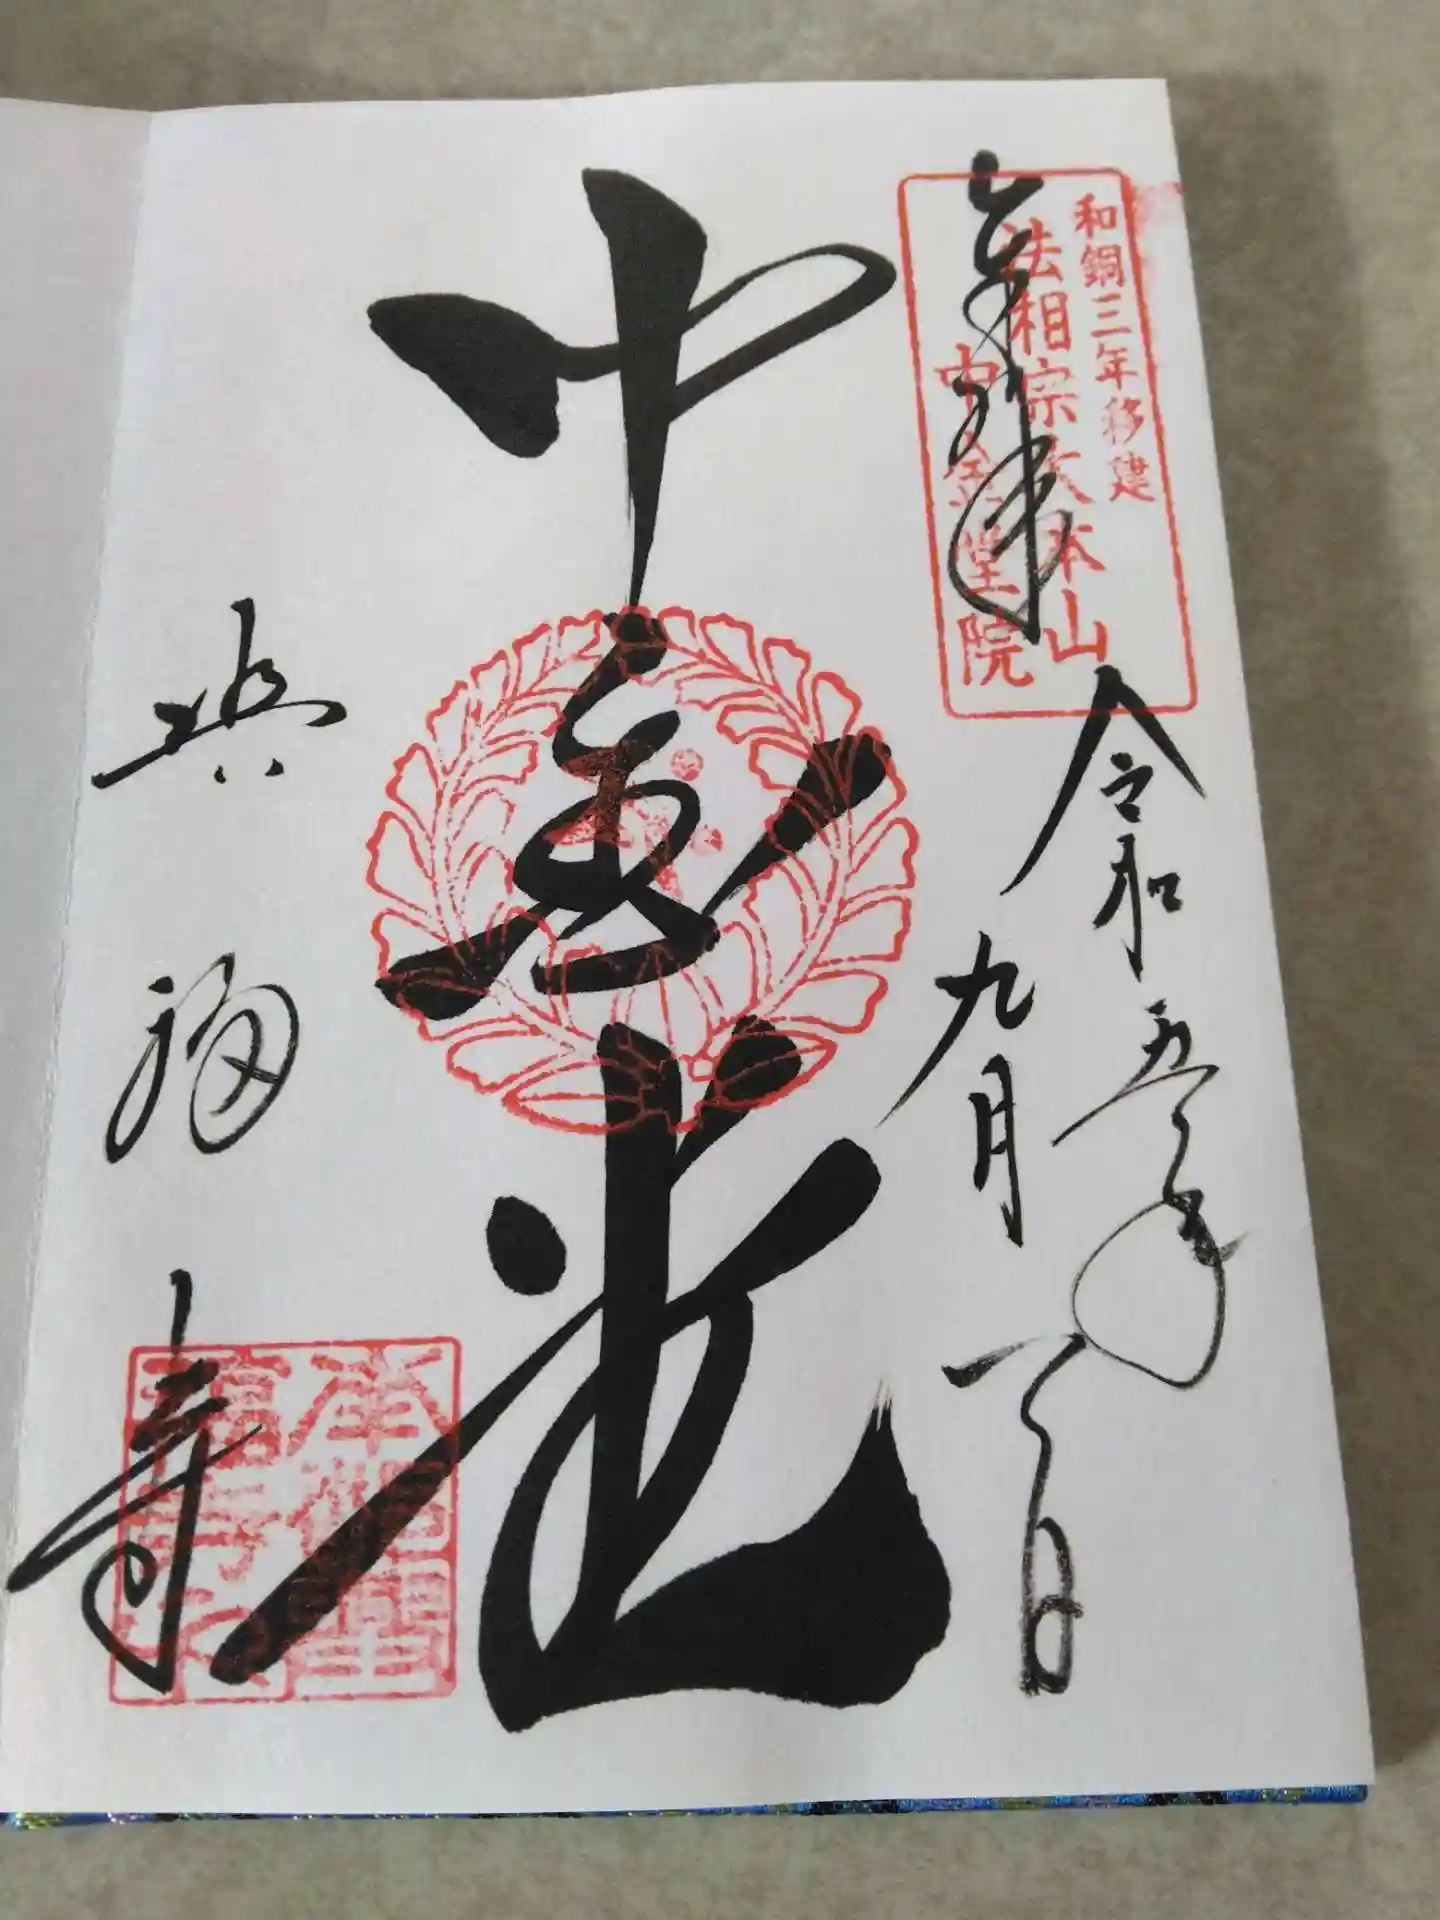 奉拝
和銅三年移建
法相宗大本山
中金堂院
令和五年
九月一日
中金堂
興福寺